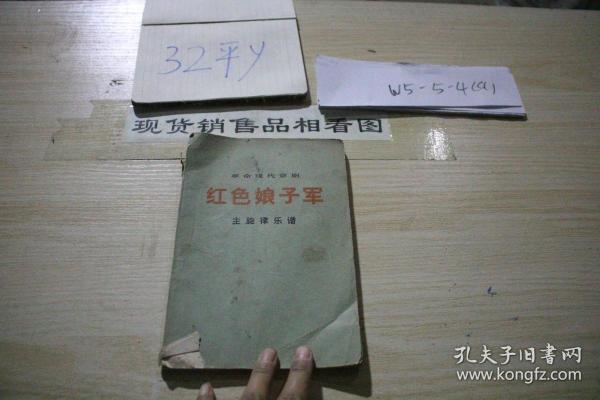 32平y
W5-5-4(9)
现货销售品相看图
革命现代京剧
红色娘子军
主旋律乐谱
孔夫子旧书网
www.kongfz.com